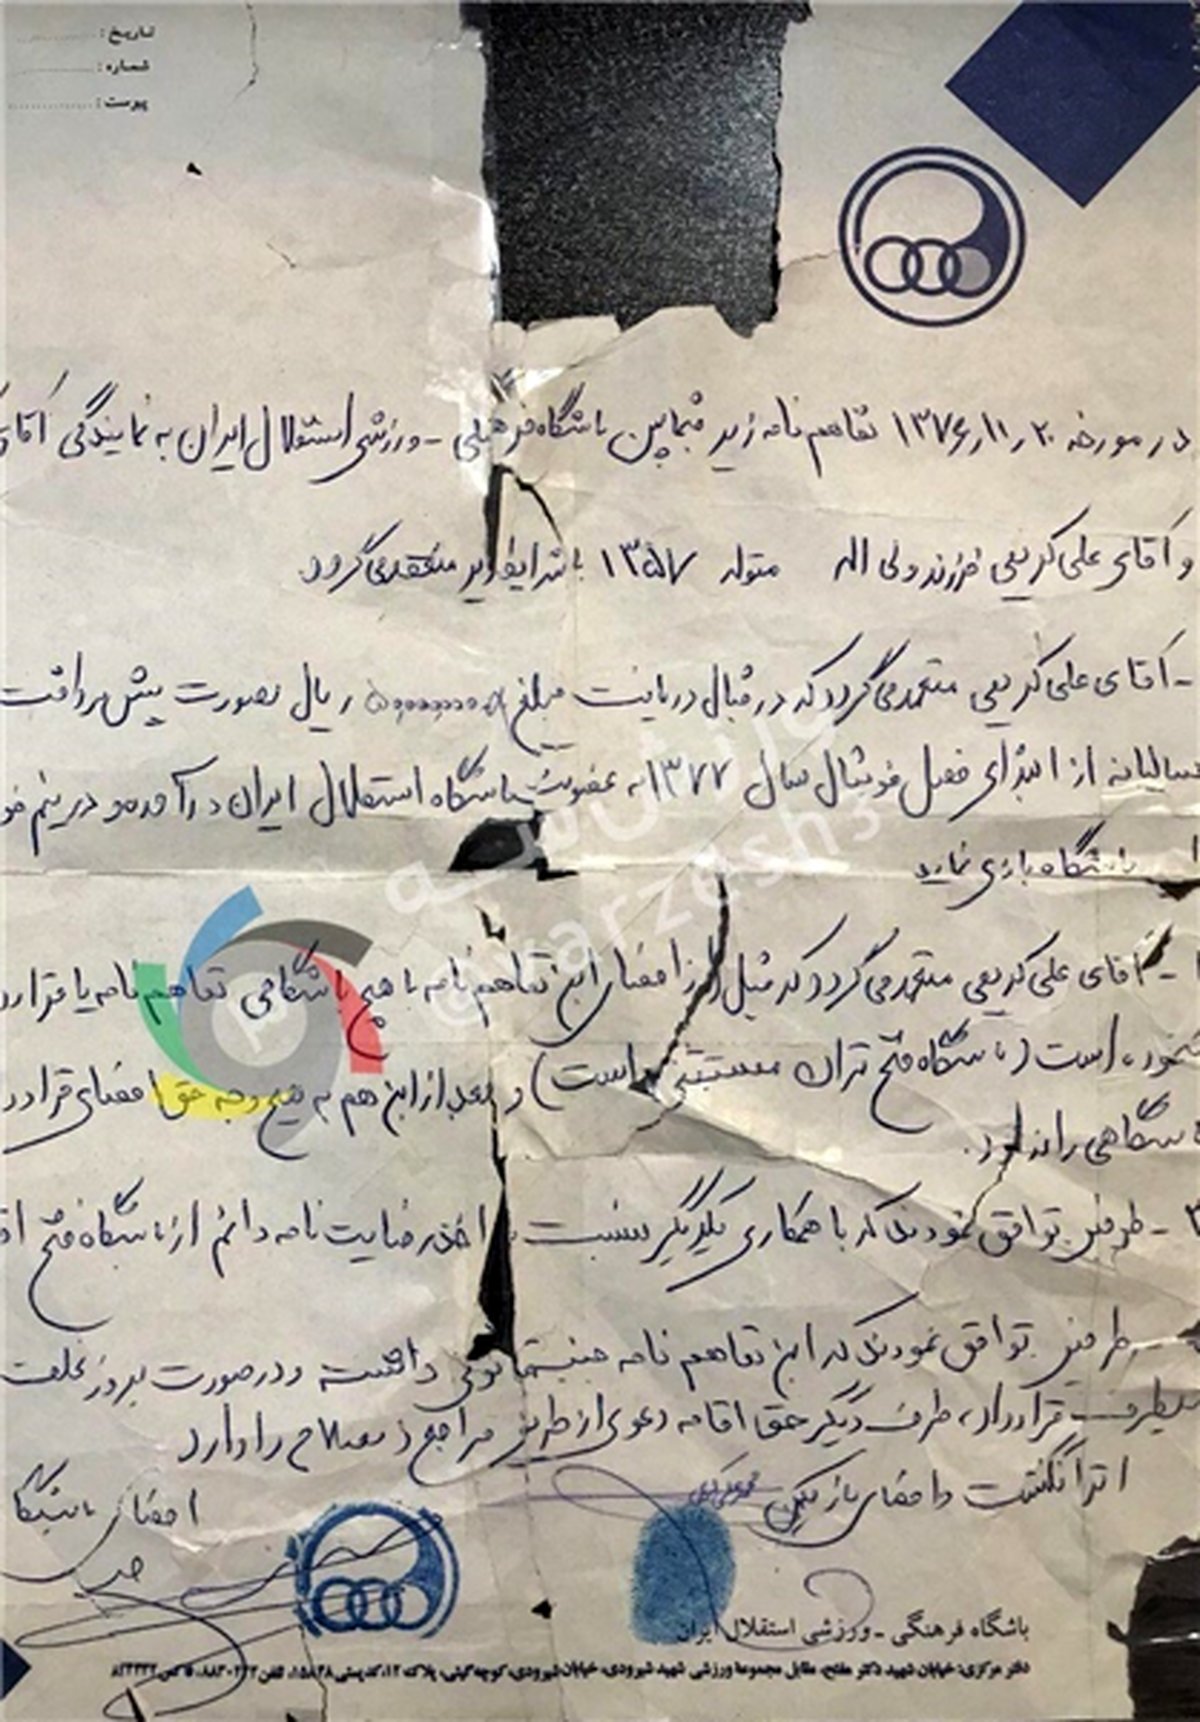 تاریخ :
شماره :
پیوست :
در مورخه ۲۰ ر ۱۱ ر ۱۳۷۶ تفاهم نامه زیر فیمابین باشگاه فرهنگی - ورزشی استقلال ایران به نمایندگی آقای
و آقای علی کریمی فرزند ولی اله متولد ۱۳۵۷ با شرایط زیر منعقد می گردد
- آقای علی کریمی متعهد می گردد که در قبال دریافت مبلغ ریال بصورت پیش پرداخت
سالیانه از ابتدای فصل فوتبال سال ۱۳۷۷ به عضویت باشگاه استقلال ایران درآمده و در تیم
باشگاه بازی نماید
- آقای علی کریمی متعهد می گردد که قبل از امضای این تفاهم نامه با هیچ باشگاهی تفاهم نامه یا قرارداد
است (باشگاه فتح تهران مستثنی است) و بعد از این هم به هیچ وجه حق امضای قرارداد
باشگاهی را ندارد.
۳ - طرفین توافق نمودند که با همکاری یکدیگر نسبت به اخذ رضایت نامه دائم از باشگاه فتح
طرفین توافق نمودند که این تفاهم نامه جنبه قانونی داشته و در صورت بروز تخلف
یکطرف قرارداد، طرف دیگر حق اقامه دعوی از طریق مراجع ذیصلاح را دارد
اثر انگشت و امضای بازیکن
امضای باشگاه
ورزش سه
@varzesh3
باشگاه فرهنگی - ورزشی استقلال ایران
دفتر مرکزی: خیابان شهید دکتر مفتح، مقابل مجموعهٔ ورزشی شهید شیرودی، خیابان شیرودی، کوچه گیتی، پلاک ۱۲، کدپستی ۱۵۸۴۸، تلفن